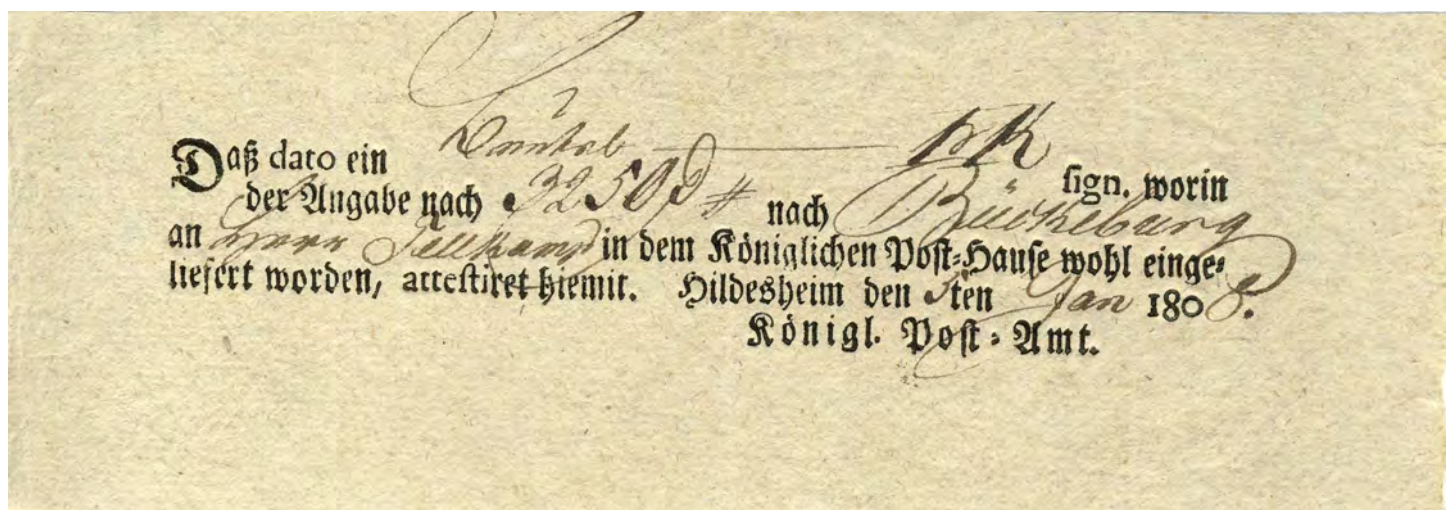 Daß dato ein Beutel — sign. worin
der Angabe nach 3250 nach Bückeburg
an Herr Sellkamp in dem Königlichen Post-Hause wohl einge-
liefert worden, attestiret hiemit. Hildesheim den 5ten Jan 1808.
Königl. Post-Amt.